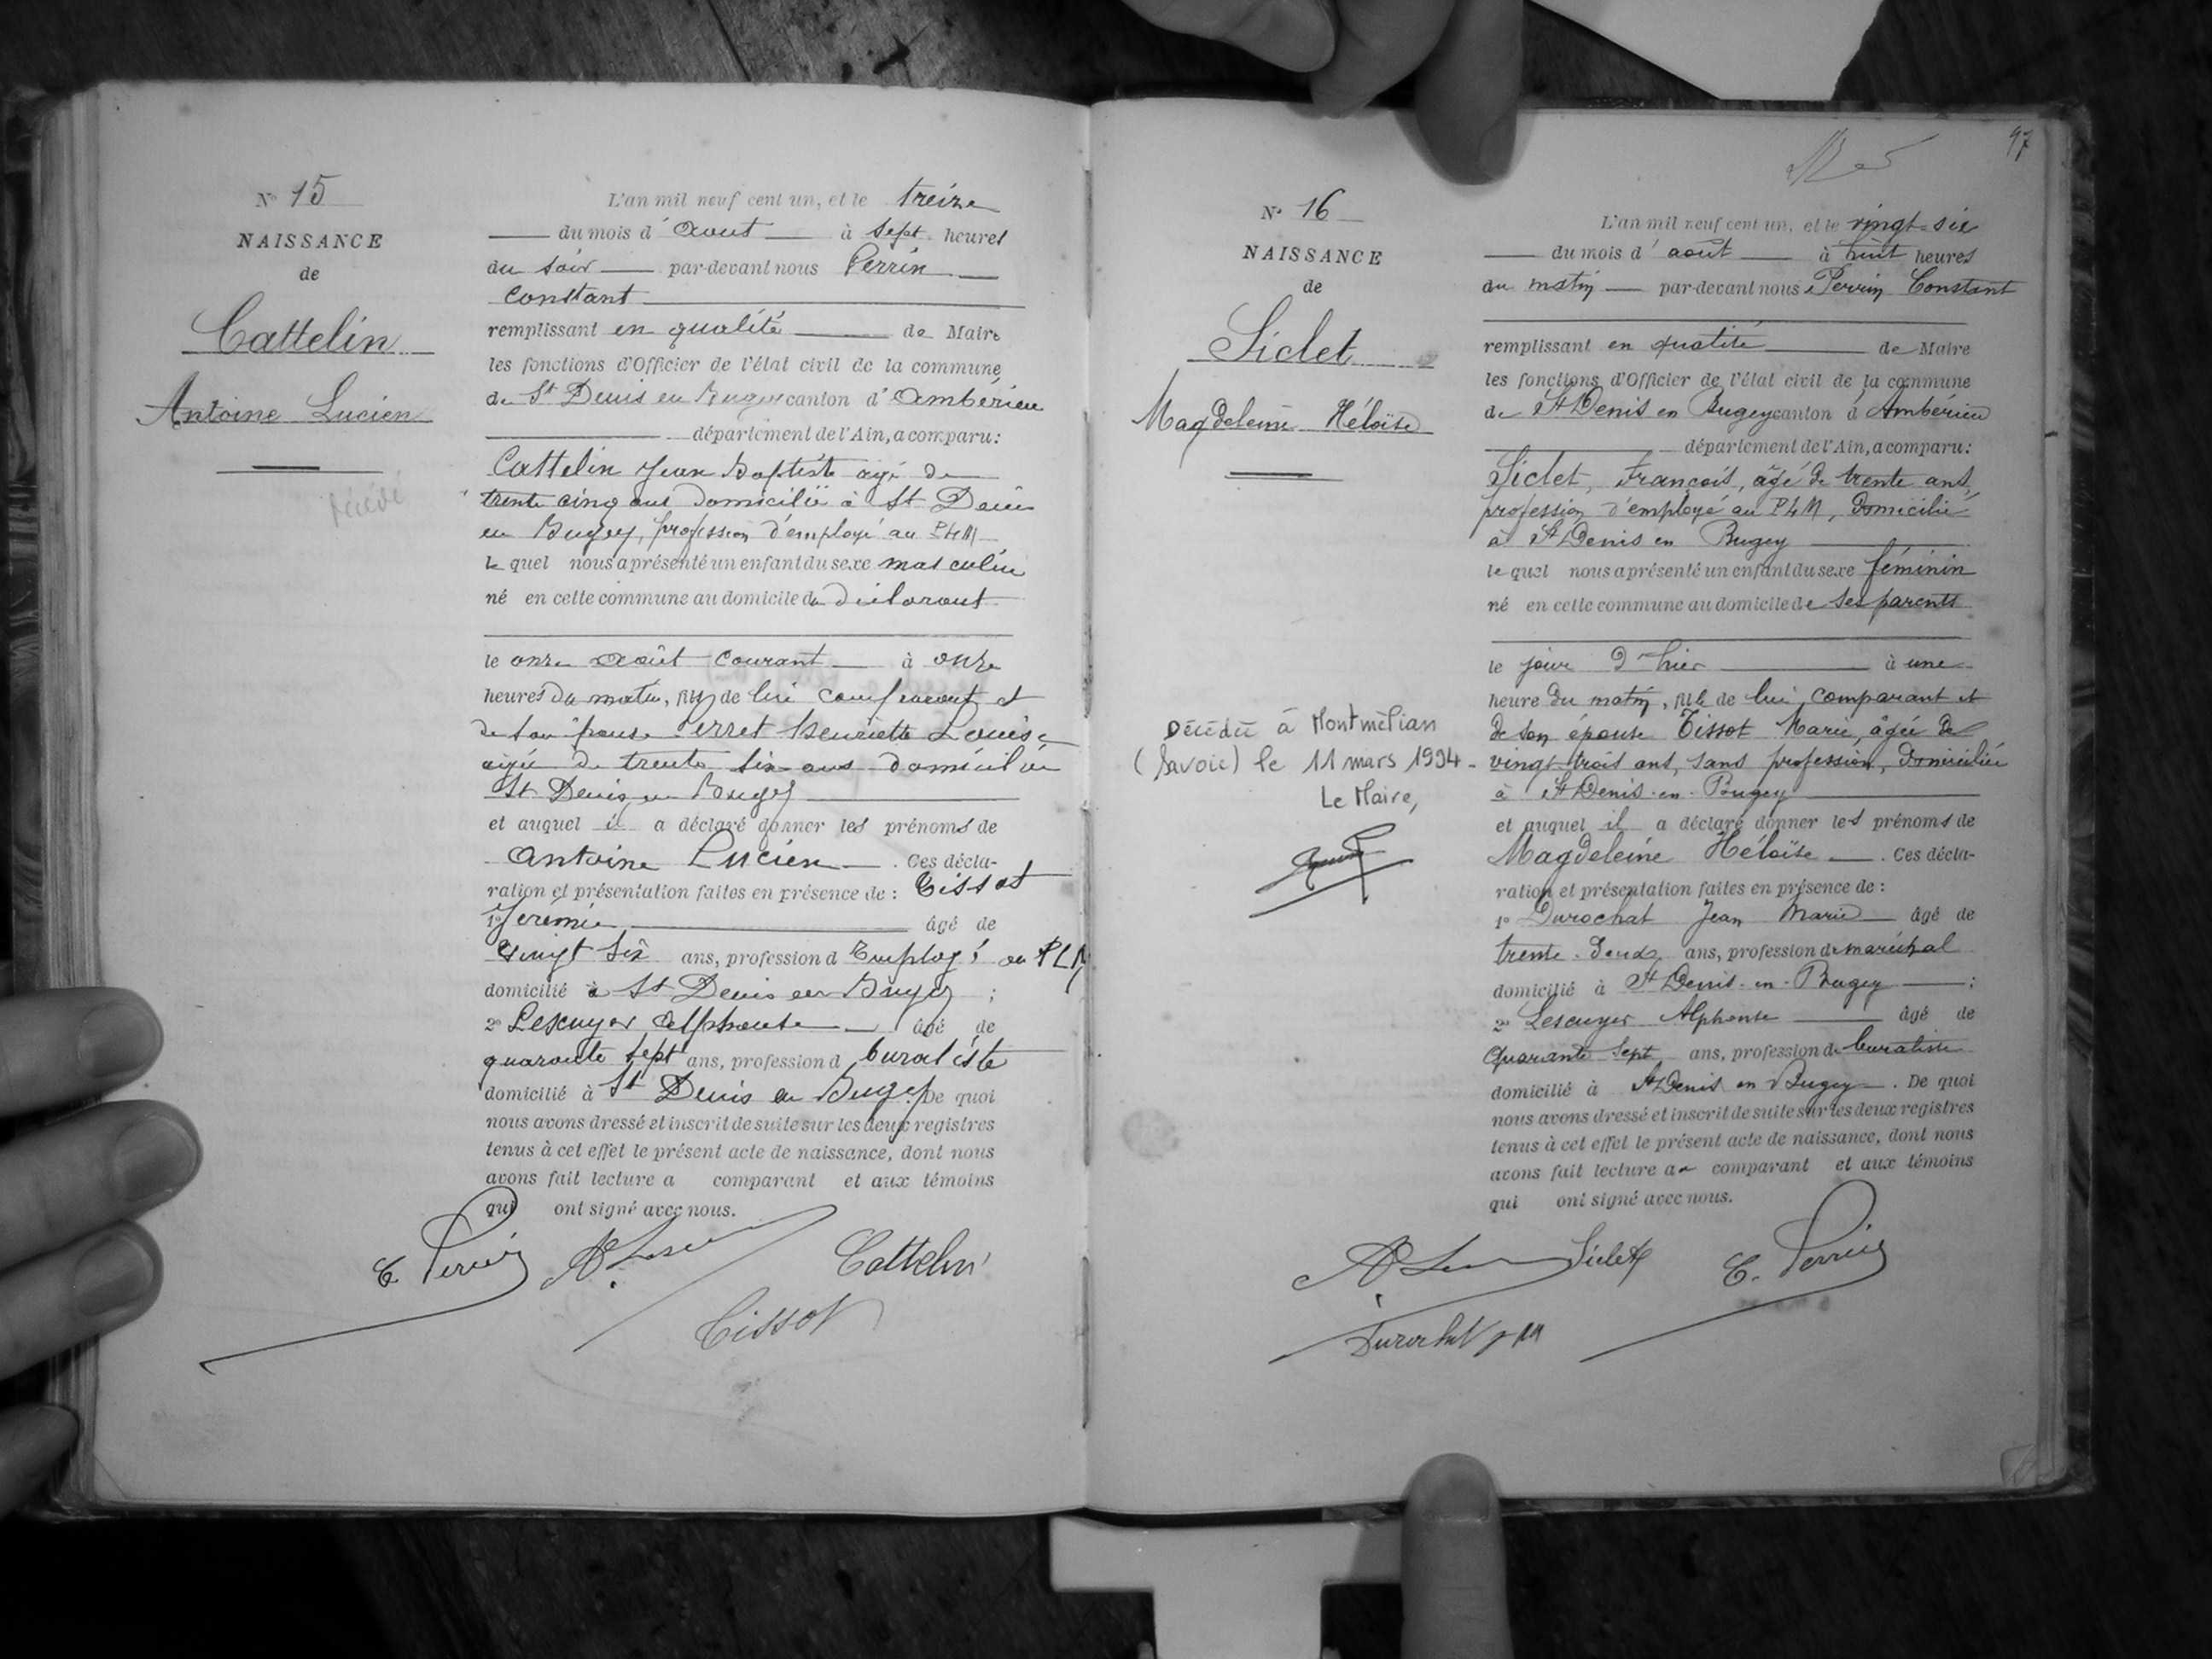 N° 15
NAISSANCE
de
Cattelin
Antoine Lucien
décédé
L'an mil neuf cent un, et le treize
du mois d'Aout à sept heures
du soir par-devant nous Perrin
Constant
remplissant en qualité de Maire
les fonctions d'Officier de l'état civil de la commune
de St Denis en Bugey canton d'Ambérieu
département de l'Ain, a comparu:
Cattelin Jean Baptiste agé de
trente cinq ans domicilié à St Denis
en Bugey, profession d'employé au PLM
le quel nous a présenté un enfant du sexe masculin
né en cette commune au domicile du déclarant
le onze Août courant à onze
heures du matin, fils de lui comparant et
de son épouse Perret Henriette Louise
agée de trente six ans domiciliée
St Denis en Bugey
et auquel il a déclaré donner les prénoms de
Antoine Lucien. Ces décla-
ration et présentation faites en présence de: Tissot
1° Jeremie âgé de
vingt six ans, profession d Employé au PLM
domicilié à St Denis en Bugey;
2° Lescuyer Alphonse âgé de
quarante sept ans, profession d buraliste
domicilié à St Denis en Bugey. De quoi
nous avons dressé et inscrit de suite sur les deux registres
tenus à cet effet le présent acte de naissance, dont nous
avons fait lecture a comparant et aux témoins
qui ont signé avec nous.
C. Perrin
Cattelin
Tissot
97
N° 16
NAISSANCE
de
Siclet
Magdeleine Héloïse
Décédée à Montmélian
(Savoie) le 11 mars 1994-
Le Maire,
L'an mil neuf cent un, et le vingt-six
du mois d'août à huit heures
du matin par-devant nous Perrin Constant
remplissant en qualité de Maire
les fonctions d'Officier de l'état civil de la commune
de St Denis en Bugey canton d'Ambérieu
département de l'Ain, a comparu:
Siclet, François, âgé de trente ans,
profession d'employé au PLM, domicilié
à St Denis en Bugey
le quel nous a présenté un enfant du sexe féminin
né en cette commune au domicile de ses parents
le jour d'hier à une
heure du matin, fille de lui comparant et
de son épouse Tissot Marie, âgée de
vingt-trois ans, sans profession, domiciliée
à St Denis-en-Bugey
et auquel il a déclaré donner les prénoms de
Magdeleine Héloïse. Ces décla-
ration et présentation faites en présence de:
1° Durochat Jean Marie âgé de
trente-deux ans, profession de maréchal
domicilié à St Denis-en-Bugey;
2° Lescuyer Alphonse âgé de
Quarante sept ans, profession de buraliste
domicilié à St Denis en Bugey. De quoi
nous avons dressé et inscrit de suite sur les deux registres
tenus à cet effet le présent acte de naissance, dont nous
avons fait lecture au comparant et aux témoins
qui ont signé avec nous.
Siclet
C. Perrin
Durochat